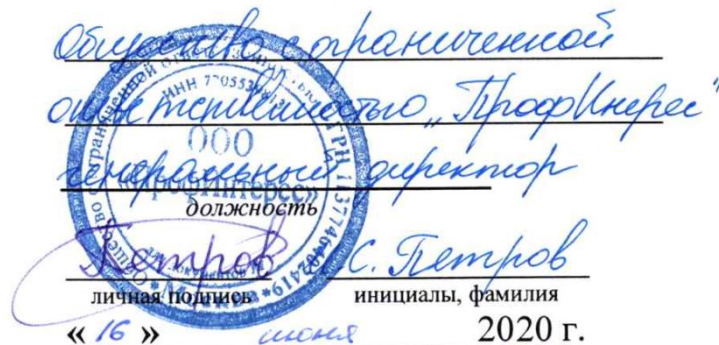 Общество с ограниченной
ответственностью „ПрофИнерес"
генеральный директор
должность
Петров С. Петров
личная подпись инициалы, фамилия
« 16 » июня 2020 г.
ООО
«ПрофИнтерес»